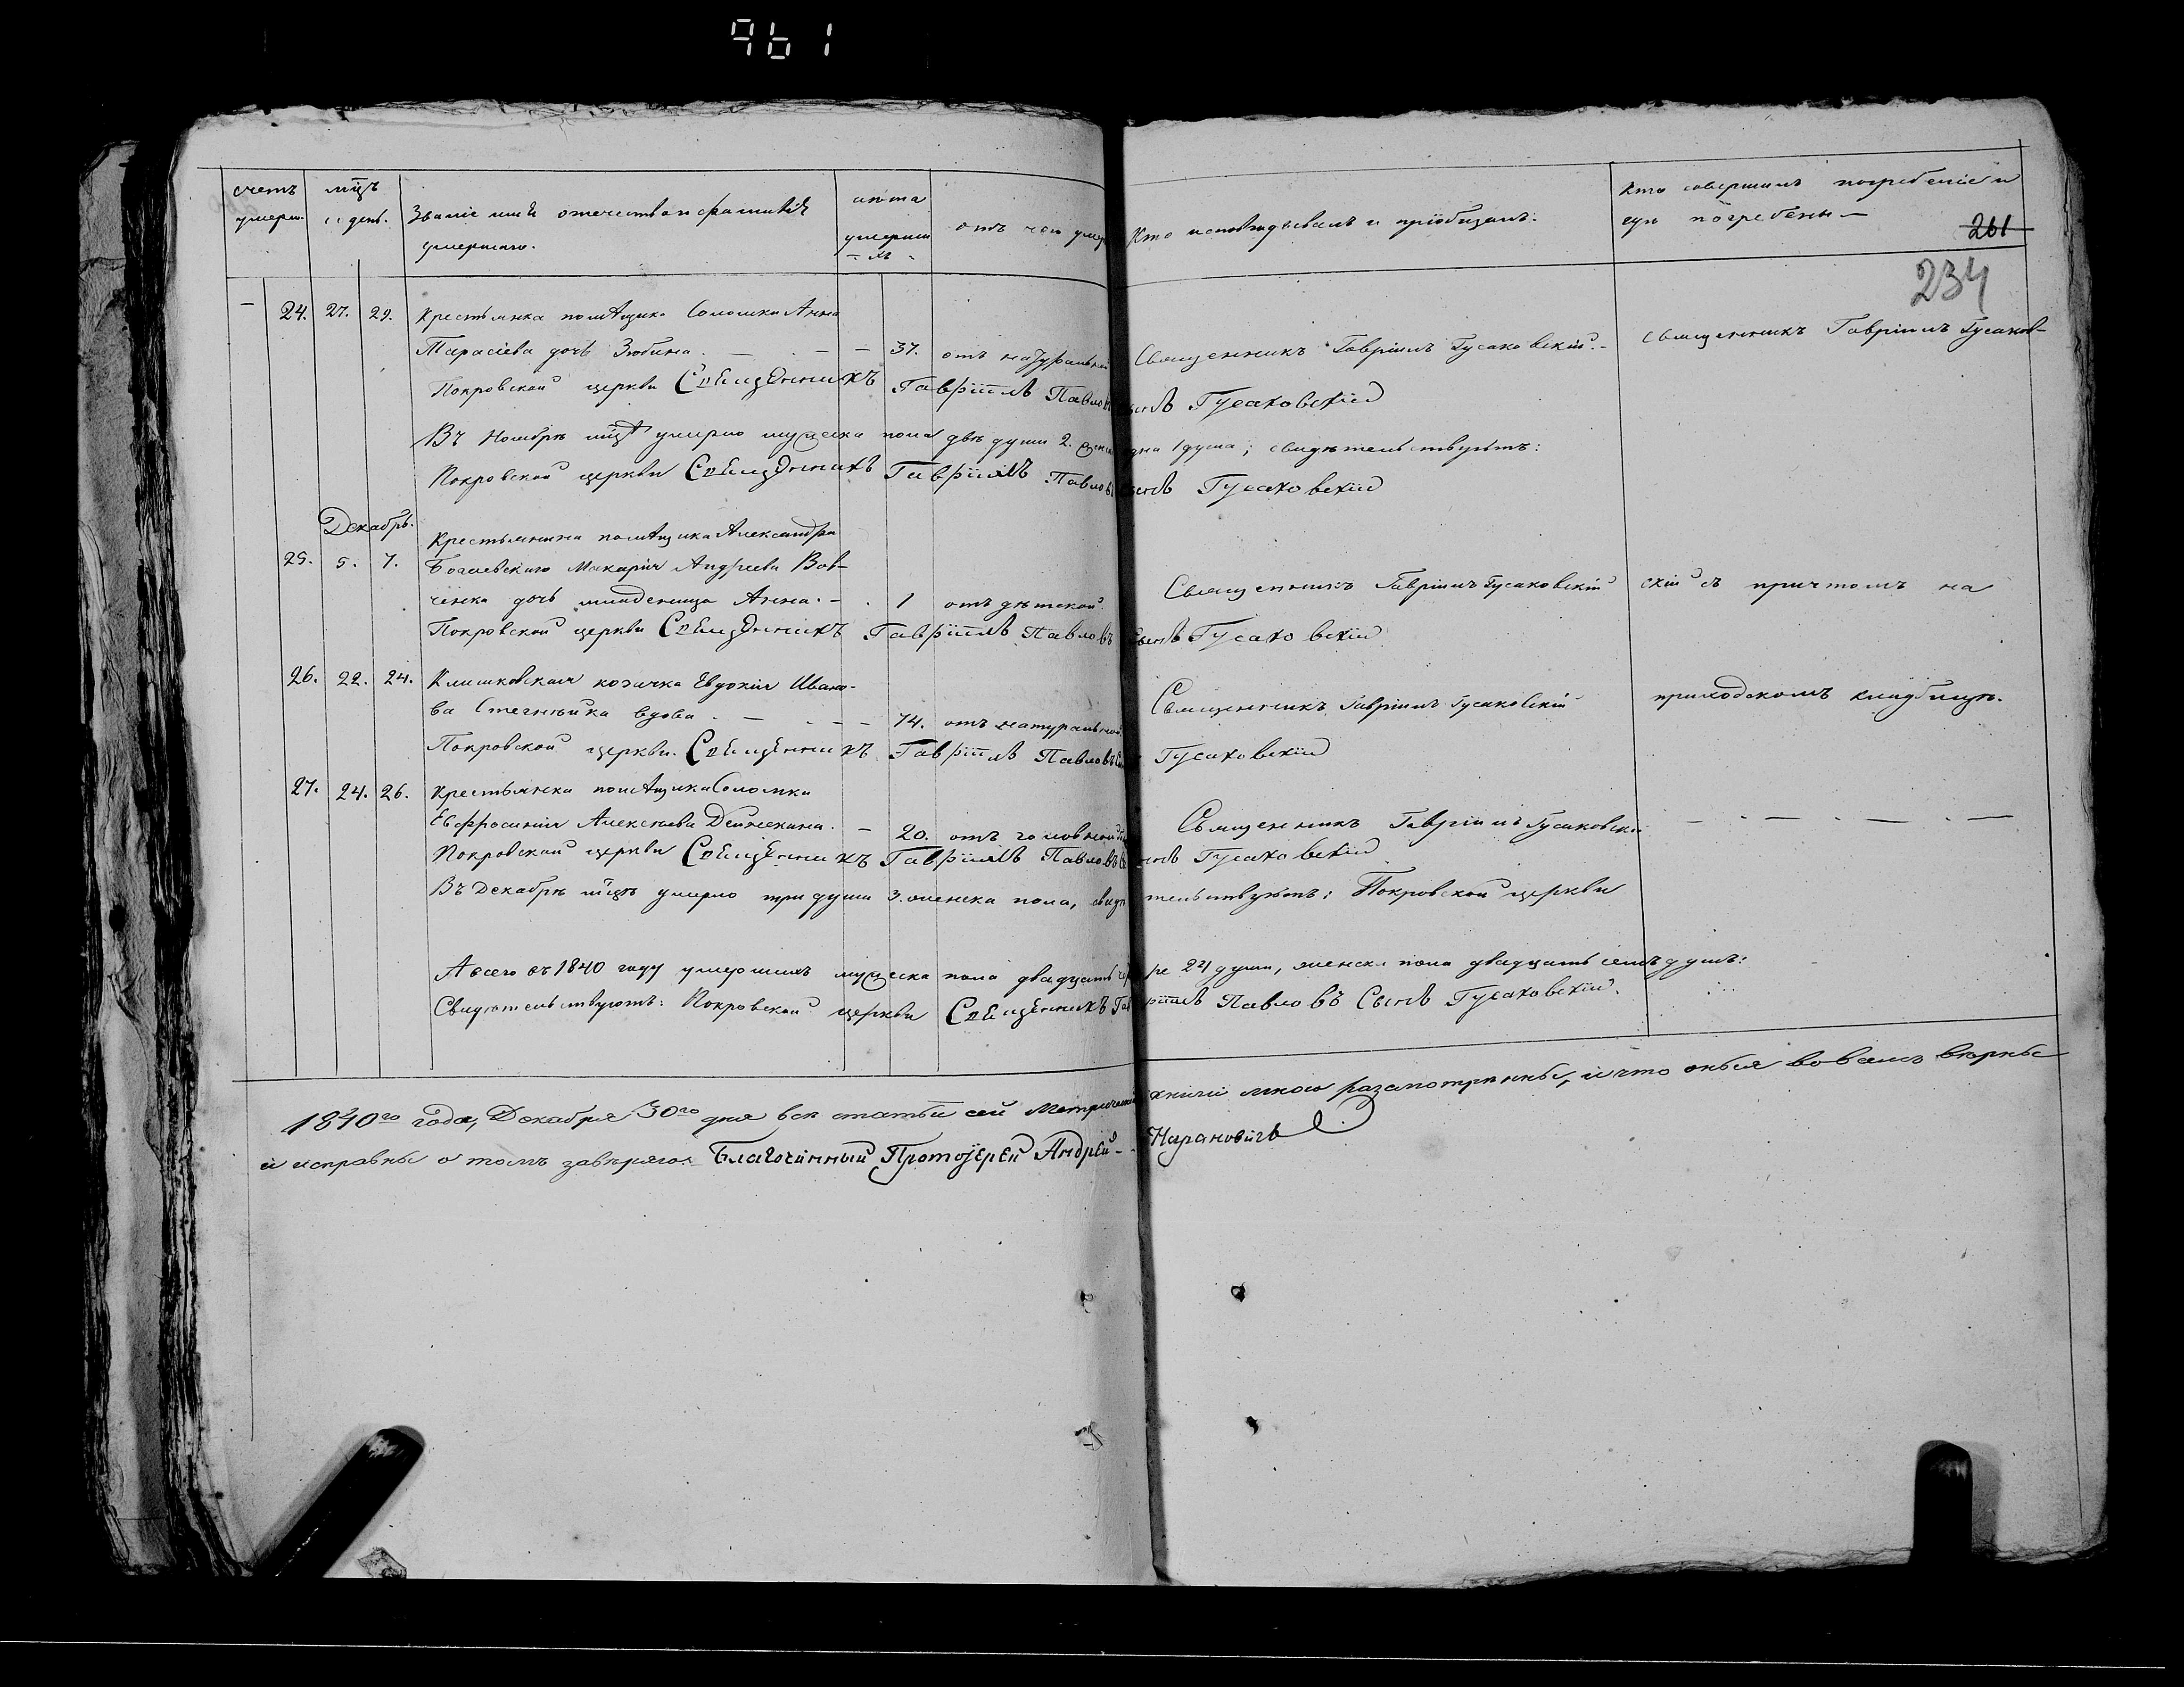 961
счетъ умерш. мцъ и день. Званіе имя отечество и фамилія умершаго. лѣта умершихъ отъ чего умер Кто исповѣдывалъ и пріобщалъ. Кто совершилъ погребеніе и гдѣ погребены —
261
234
— 24. 27. 29. Крестьянка помѣщика Соломки Анна
Тарасіева дочь Зюбина. — — — 37. отъ натуральной Священникъ Гавріилъ Гусаковскій. — Священникъ Гавріилъ Гусаков-
Покровской церкви Священникъ Гавріилъ Павловъ сынъ Гусаковскій
Въ Ноябрѣ мцѣ умерло мужеска пола двѣ души 2. женска одна 1 душа; свидѣтельствуютъ:
Покровской церкви Священникъ Гавріилъ Павловъ сынъ Гусаковскій
Декабрь.
Крестьянина помѣщика Александра
25. 5. 7. Богаевского Макарія Андреева Вов-
ченка дочь младеница Анна. — 1 отъ дѣтской. Священникъ Гавріилъ Гусаковскій скій съ причтомъ на
Покровской церкви Священникъ Гавріилъ Павловъ сынъ Гусаковскій
26. 22. 24. Клишковская козачка Евдокія Ивано-
ва вдова. — — — 74. отъ натуральной Священникъ Гавріилъ Гусаковскій приходскомъ кладбищѣ.
Покровской церкви. Священникъ Гавріилъ Павловъ Гусаковскій
27. 24. 26. Крестьянка помѣщика Соломки
Евфросинія Алексѣева Дейнекина. — 20. отъ головной Священникъ Гавріилъ Гусаковскі — — — — —
Покровской церкви Священникъ Гавріилъ Павловъ сынъ Гусаковскій
Въ Декабрѣ мцѣ умерло три души 3. женска пола, свидѣтельствуютъ: Покровской церкви
А всего въ 1840 году умершихъ мужеска пола двадцать четыре 24 души, женска пола двадцать семь душъ:
Свидѣтельствуютъ: Покровской церкви Священникъ Гавріилъ Павловъ Сынъ Гусаковскій.
1840го года, Декабря 30го дня всѣ статьи сей Метрической книги мною разсмотрѣнны, и что оныя во всемъ вѣрны
и исправны о томъ завѣряю: Благочинный Протоіерей Андрей Нарановичъ